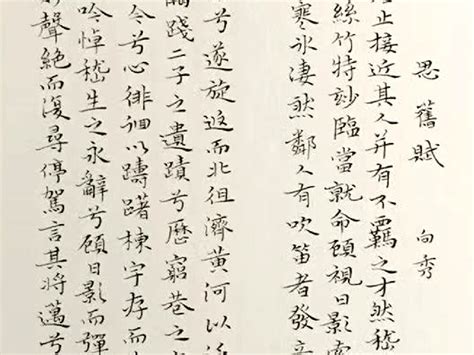 思舊賦 向秀
止接近其人并有不羈之才然嵇
絲竹特妙臨當就命顧視日影索
寒冰淒然鄰人有吹笛者發
兮遂旋返而北徂濟黃河以
隅踐二子之遺蹟兮歷窮巷之
今兮心徘徊以躊躇棟宇存而
吟悼嵇生之永辭兮顧日影而彈
聲絕而復尋停駕言其將邁兮